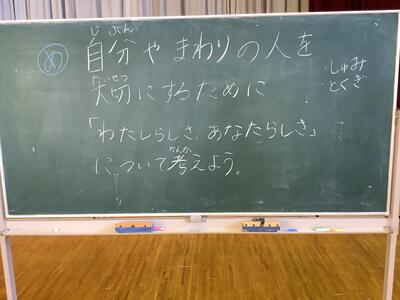 め
じ ぶん
自分やまわりの人を
たいせつ
大切にするために
「わたしらしさ、あなたらしさ」
かんが
について考えよう。
しゅみ
とくぎ